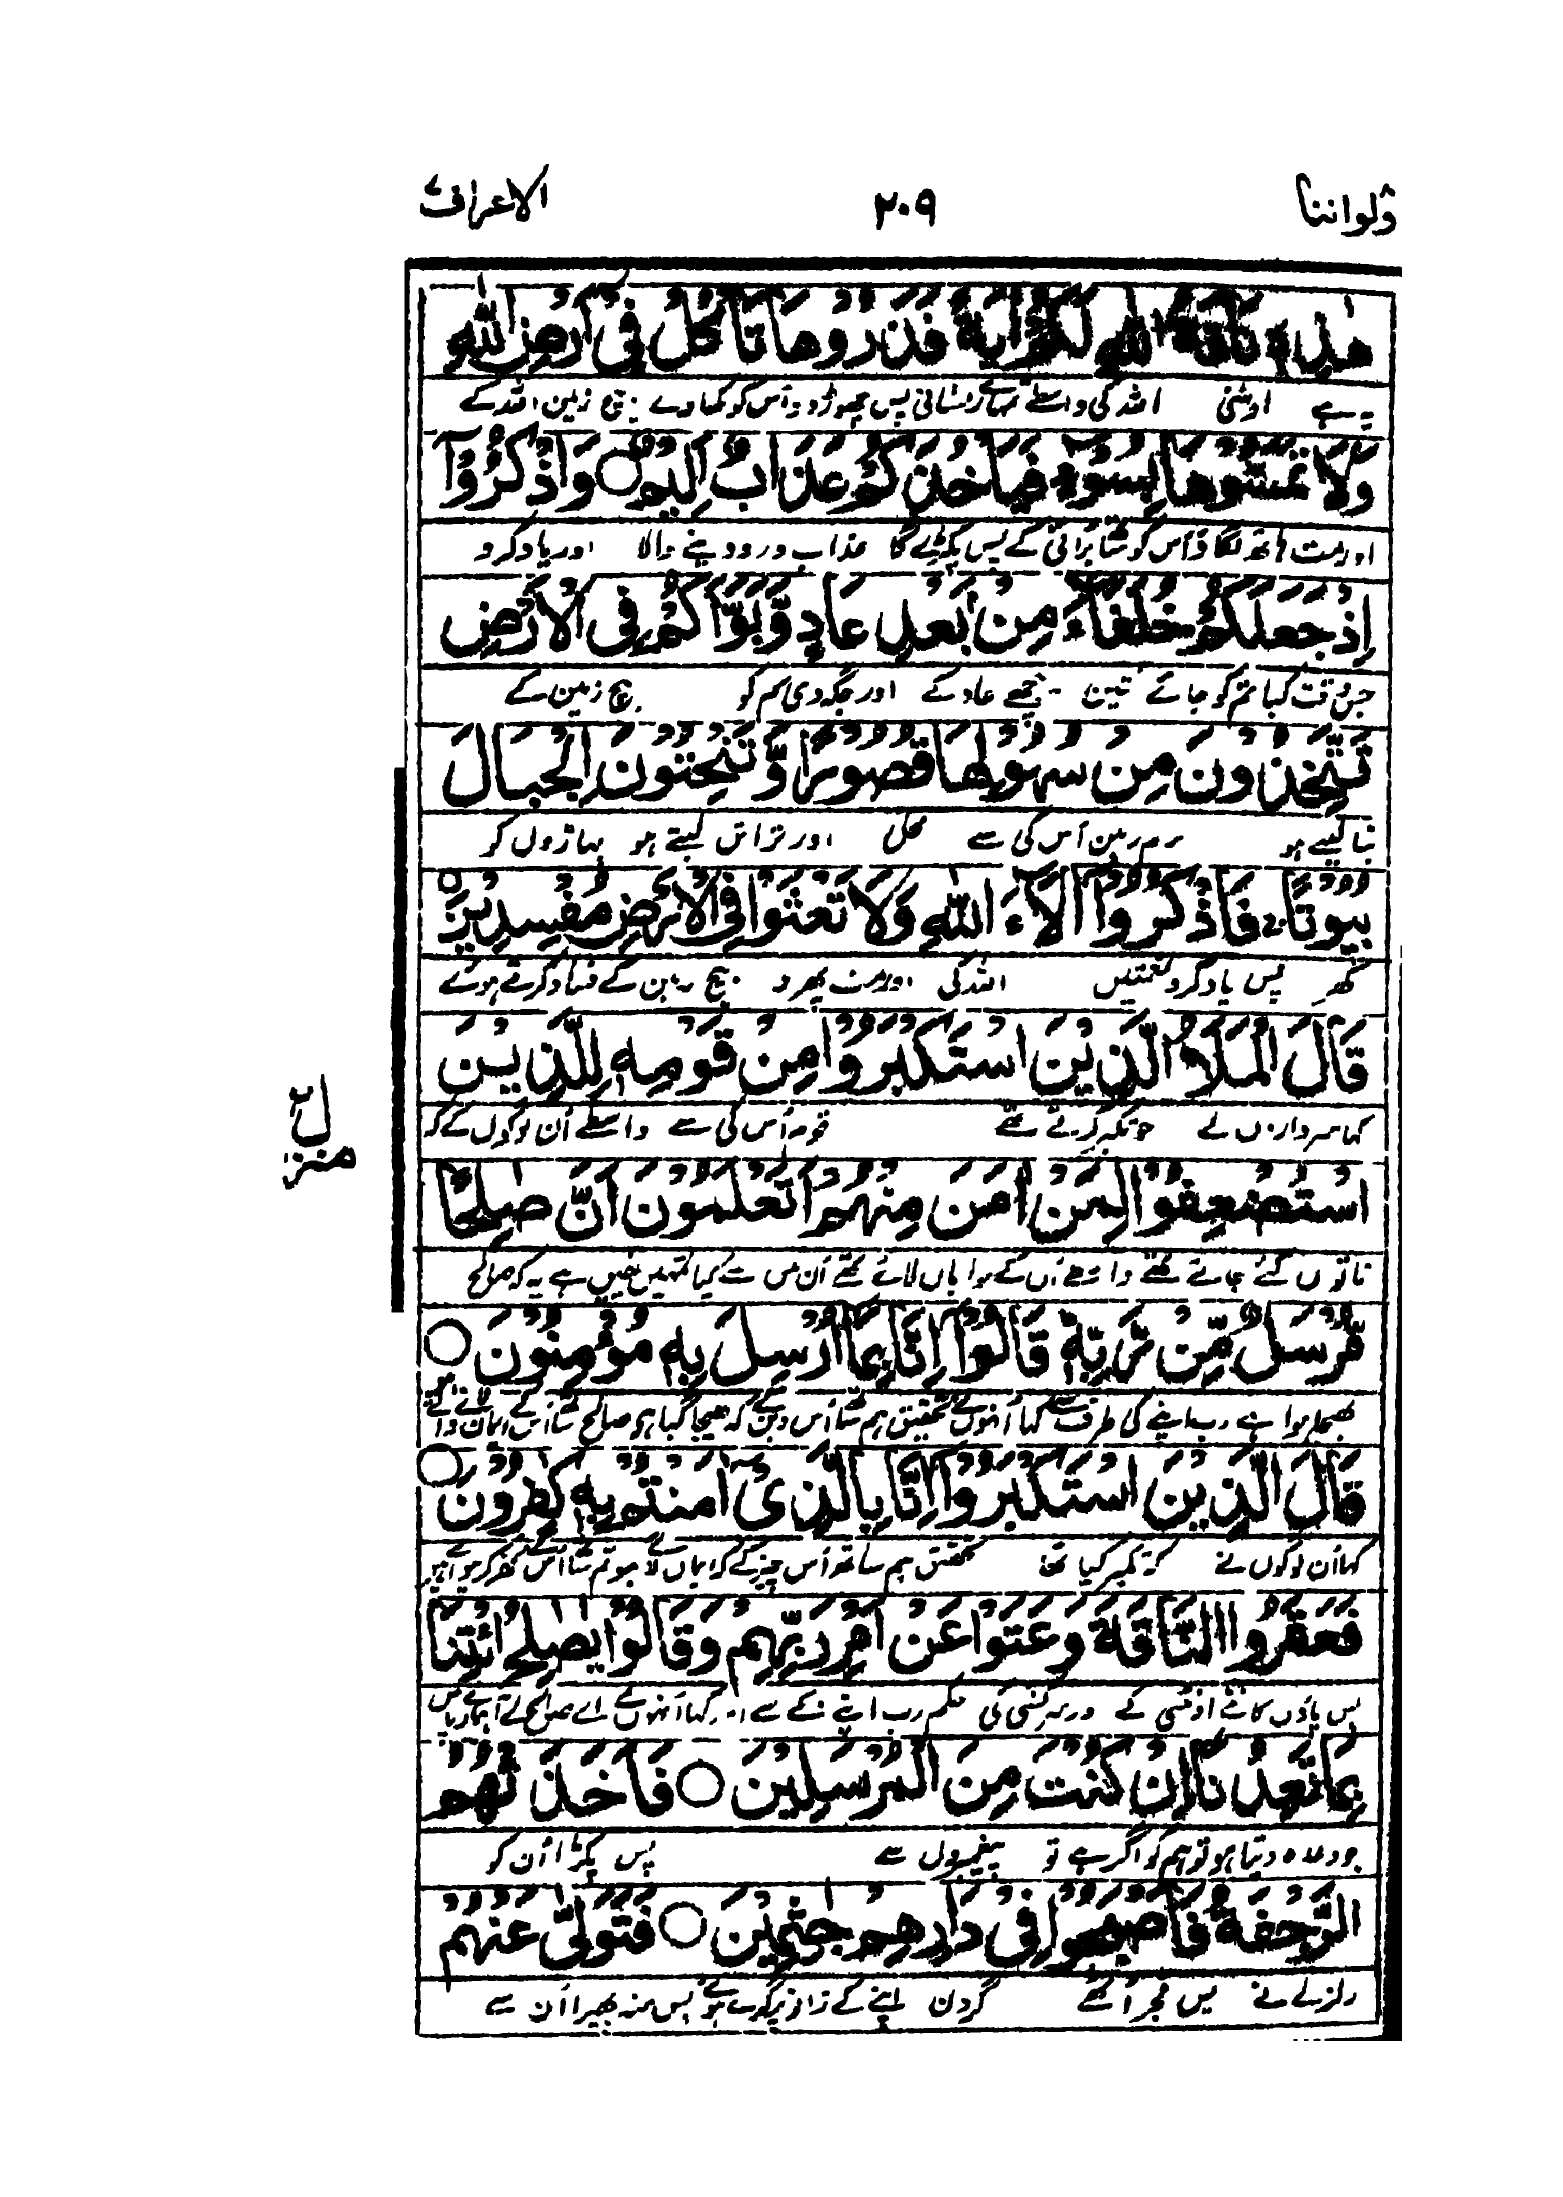 ولواننا ٢٠٩ الاعراف
هٰذِهٖ نَاقَةُ اللّٰهِ لَكُمْ اٰيَةً فَذَرُوْهَا تَاْكُلْ فِيْٓ اَرْضِ اللّٰهِ
یہ ہے اونٹنی اللہ کی واسطے تمہارے نشانی پس چھوڑ دو اس کو کھاوے بیچ زمین اللہ کے
وَلَا تَمَسُّوْهَا بِسُوْٓءٍ فَيَاْخُذَكُمْ عَذَابٌ اَلِيْمٌ ○ وَاذْكُرُوْٓا
اور مت ہاتھ لگاؤ اس کو ساتھ برائی کے پس پکڑیگا عذاب درد دینے والا اور یاد کرو
اِذْ جَعَلَكُمْ خُلَفَآءَ مِنْۢ بَعْدِ عَادٍ وَّبَوَّاَكُمْ فِى الْاَرْضِ
جس وقت کیا تم کو جائے نشین پیچھے عاد کے اور جگہ دی تم کو بیچ زمین کے
تَتَّخِذُوْنَ مِنْ سُهُوْلِهَا قُصُوْرًا وَّتَنْحِتُوْنَ الْجِبَالَ
بنا لیتے ہو نرم زمین اس کی سے محل اور تراش لیتے ہو پہاڑوں کو
بُيُوْتًا ۚ فَاذْكُرُوْٓا اٰلَآءَ اللّٰهِ وَلَا تَعْثَوْا فِى الْاَرْضِ مُفْسِدِيْنَ ○
گھر پس یاد کرو نعمتیں اللہ کی اور مت پھرو بیچ زمین کے فساد کرتے ہوئے
قَالَ الْمَلَاُ الَّذِيْنَ اسْتَكْبَرُوْا مِنْ قَوْمِهٖ لِلَّذِيْنَ
کہا سرداروں نے جو تکبر کرتے تھے قوم اس کی سے واسطے ان لوگوں کے کہ
اسْتُضْعِفُوْا لِمَنْ اٰمَنَ مِنْهُمْ اَتَعْلَمُوْنَ اَنَّ صٰلِحًا
ناتواں گنے جاتے تھے واسطے ان کے جو ایمان لائے تھے ان میں سے کیا تمہیں یقین ہے یہ کہ صالح
مُّرْسَلٌ مِّنْ رَّبِّهٖ ۭ قَالُوْٓا اِنَّا بِمَآ اُرْسِلَ بِهٖ مُؤْمِنُوْنَ ○
بھیجا ہوا ہے رب اپنے کی طرف سے کہا انہوں نے تحقیق ہم ساتھ اس دین کے کہ بھیجا گیا ہی صالح ساتھ اس کے ایمان لانے والے ہیں
قَالَ الَّذِيْنَ اسْتَكْبَرُوْٓا اِنَّا بِالَّذِيْٓ اٰمَنْتُمْ بِهٖ كٰفِرُوْنَ ○
کہا ان لوگوں نے کہ تکبر کیا تھا تحقیق ہم ساتھ اس چیز کے کہ ایمان لائے ہو تم ساتھ اس کے کفر کرنے والے ہیں
فَعَقَرُوا النَّاقَةَ وَعَتَوْا عَنْ اَمْرِ رَبِّهِمْ وَقَالُوْا يٰصٰلِحُ ائْتِنَا
پس پاؤں کاٹے اونٹنی کے اور سرکشی کی حکم رب اپنے کے سے اور کہا انہوں نے اے صالح لے آ ہمارے پاس
بِمَا تَعِدُنَآ اِنْ كُنْتَ مِنَ الْمُرْسَلِيْنَ ○ فَاَخَذَتْهُمُ
جو وعدہ دیتا ہو تو ہم کو اگر ہے تو پیغمبروں سے پس پکڑا ان کو
الرَّجْفَةُ فَاَصْبَحُوْا فِيْ دَارِهِمْ جٰثِمِيْنَ ○ فَتَوَلّٰى عَنْهُمْ
زلزلے نے پس فجر اٹھے گردن اپنے کے زانو پر گرے ہوئے پس منہ پھیرا ان سے
منزل ٢